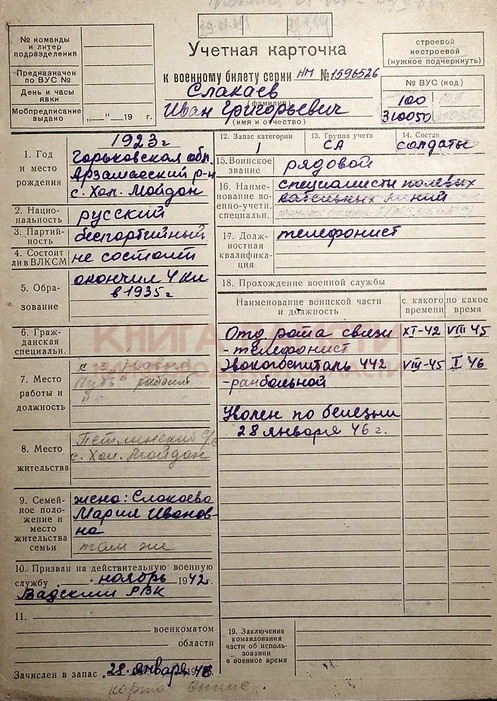 Учетная карточка
к военному билету серии НМ №1596526
Слакаев
(фамилия)
Иван Григорьевич
(имя и отчество)
№ команды
и литер
подразделения
Предназначен
по ВУС №
День и часы
явки
Мобпредписание
выдано „ “ 19 г.
строевой
нестроевой
(нужное подчеркнуть)
№ ВУС (код)
100
310050
1. Год
и место
рождения
1923 г
Горьковская обл.
Арзамасский р-н
с. Хол. Майдан
2. Нацио-
нальность
русский
3. Партий-
ность
беспартийный
4. Состоит
ли в ВЛКСМ
не состоит
5. Обра-
зование
окончил 4 кл
в 1935 г
6. Граж-
данская
специальн.
7. Место
работы и
должность
8. Место
жительства
с. Хол. Майдан
9. Семей-
ное поло-
жение и
место
жительства
семьи
жена: Слакаева
Мария Иванов-
на
там же
10. Призван на действительную военную
службу ноябрь 1942 г.
Вадский РВК
11.
военкоматом
области
Зачислен в запас 28 января 1946
12. Запас категории
1
13. Группа учета
СА
14. Состав
солдаты
15. Воинское
звание
рядовой
16. Наиме-
нование во-
енно-учетн.
специальн.
специалисты полевых
кабельных линий
17. Долж-
ностная
квалифика-
ция
телефонист
18. Прохождение военной службы
Наименование воинской части
и должность
с какого
времени
по какое
время
Отд рота связи XI-42 VIII 45
- телефонист
Эвакогоспиталь 442 VIII-45 I 46
- ранбольной
Уволен по болезни
28 января 46 г.
19. Заключение
командования
части об исполь-
зовании
в военное время
КНИГА